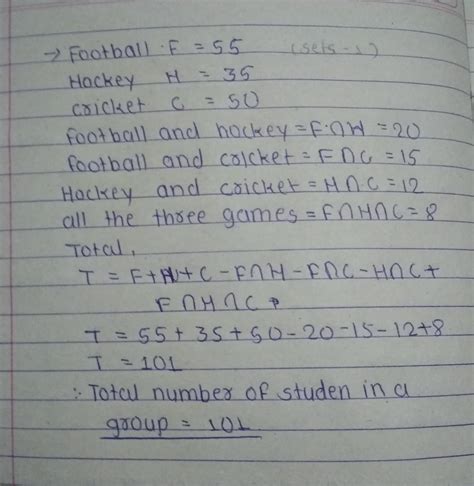 → Football F = 55 (sets - 1)
Hockey H = 35
cricket C = 50
football and hockey = F∩H = 20
football and cricket = F∩C = 15
Hockey and cricket = H∩C = 12
all the three games = F∩H∩C = 8
Total,
T = F + H + C - F∩H - F∩C - H∩C +
F∩H∩C
T = 55 + 35 + 50 - 20 - 15 - 12 + 8
T = 101
∴ Total number of studen in a
group = 101